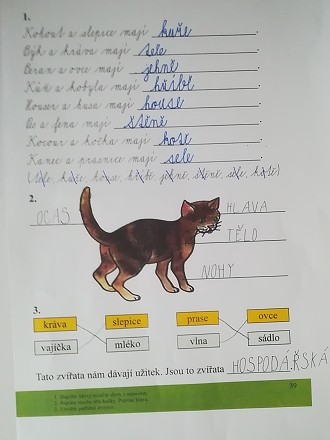 1.
Kohout a slepice mají kuře.
Býk a kráva mají tele.
Beran a ovce mají jehně.
Kůň a kobyla mají hříbě.
Houser a husa mají house.
Pes a fena mají štěně.
Kocour a kočka mají kotě.
Kanec a prasnice mají sele.
(tele, kuře, house, kotě, jehně, štěně, sele, hříbě)
2.
OCAS HLAVA
TĚLO
NOHY
3.
kráva slepice prase ovce
vajíčka mléko vlna sádlo
Tato zvířata nám dávají užitek. Jsou to zvířata HOSPODÁŘSKÁ
39